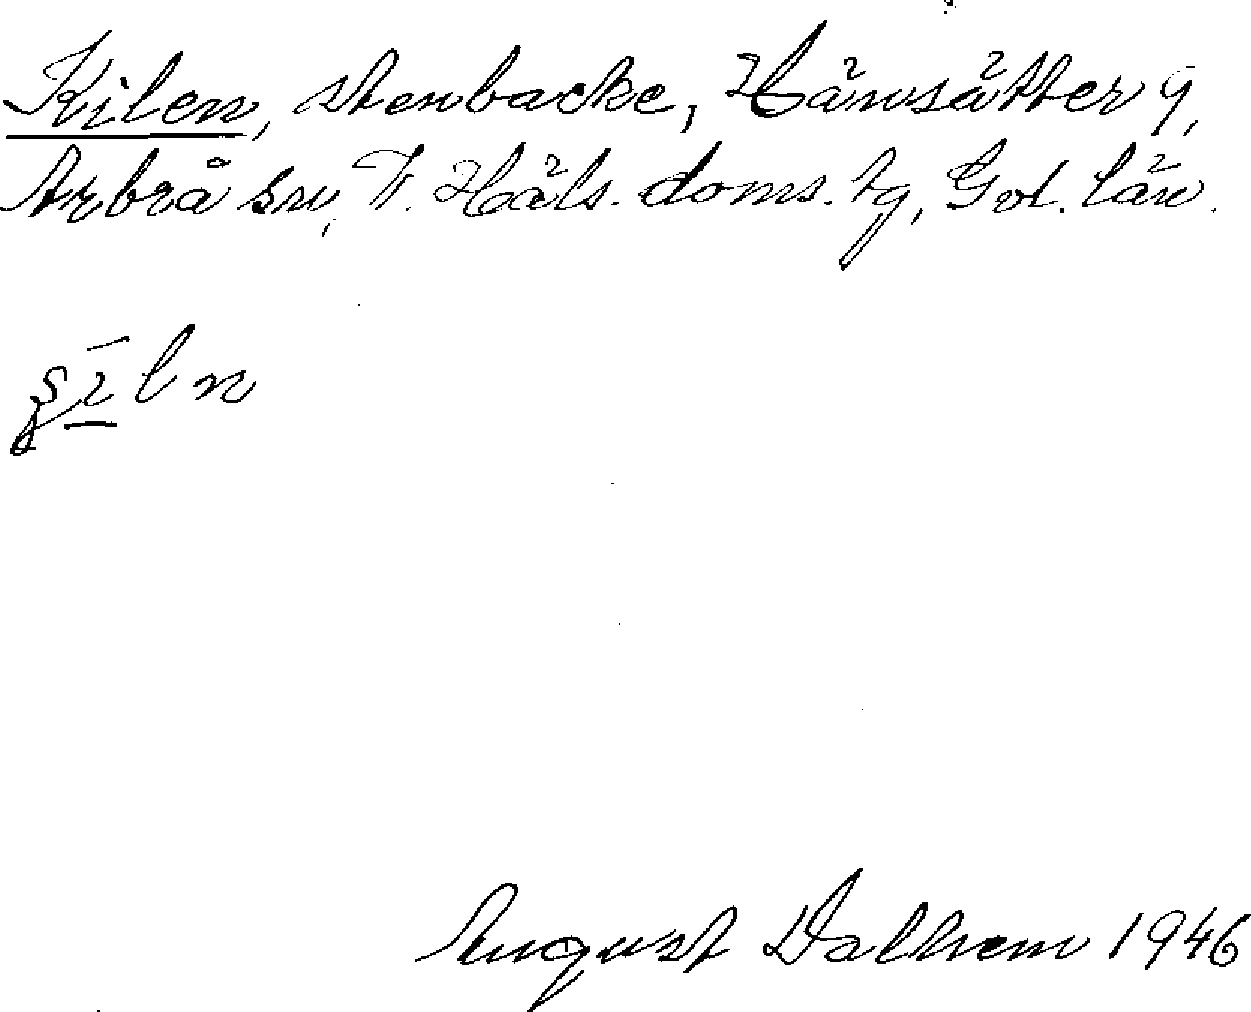 Kilen, stenbacke, Hänsätter 9,
Arbrå sn, V. Häls. doms. tg, Gvl. län.
şīln
August Dalhem 1946